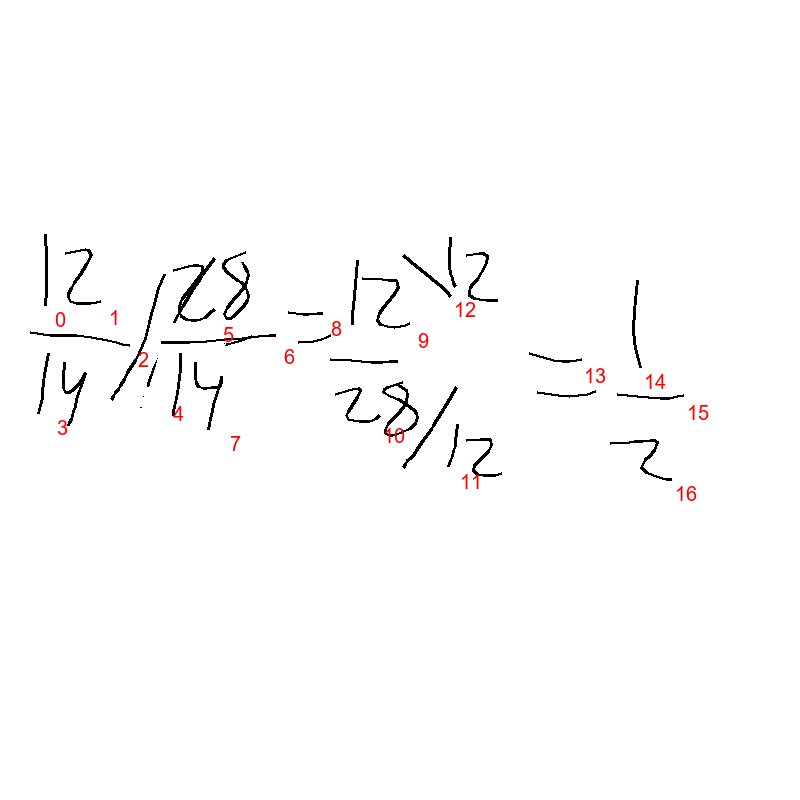 12/14 / 28/14 = (12 \ 12)/(28 / 12) = 1/2
0 1 2 3 4 5 6 7 8 9 10 11 12 13 14 15 16